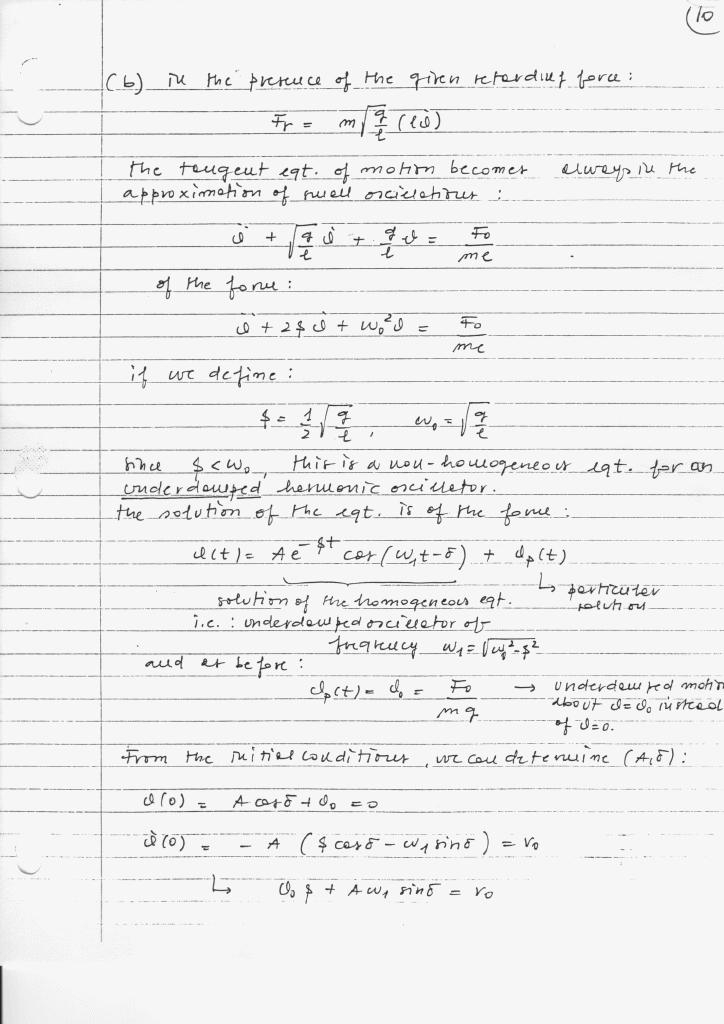 10
(b) in the presence of the given retarding force:
Fr = m√(g/l) (lϑ̇)
the tangent eqt. of motion becomes always in the
approximation of small oscillations :
ϑ̈ + √(g/l) ϑ̇ + g/l ϑ = F0/ml
of the form :
ϑ̈ + 2β ϑ̇ + ω0² ϑ = F0/ml
if we define :
β = 1/2 √(g/l) , ω0 = √(g/l)
since β < ω0, this is a non-homogeneous eqt. for an
underdamped harmonic oscillator.
the solution of the eqt. is of the form :
ϑ(t) = A e^(-βt) cos(ω1t-δ) + ϑp(t)
solution of the homogeneous eqt. ↳ particular
solution
i.e. : underdamped oscillator of
frequency ω1 = √(ω0²-β²)
and as before :
ϑp(t) = ϑ0 = F0/mg → underdamped motion
about ϑ=ϑ0 instead
of ϑ=0.
From the initial conditions, we can determine (A,δ) :
ϑ(0) = A cosδ + ϑ0 = 0
ϑ̇(0) = - A (β cosδ - ω1 sinδ) = v0
↳ ϑ0 β + A ω1 sinδ = v0